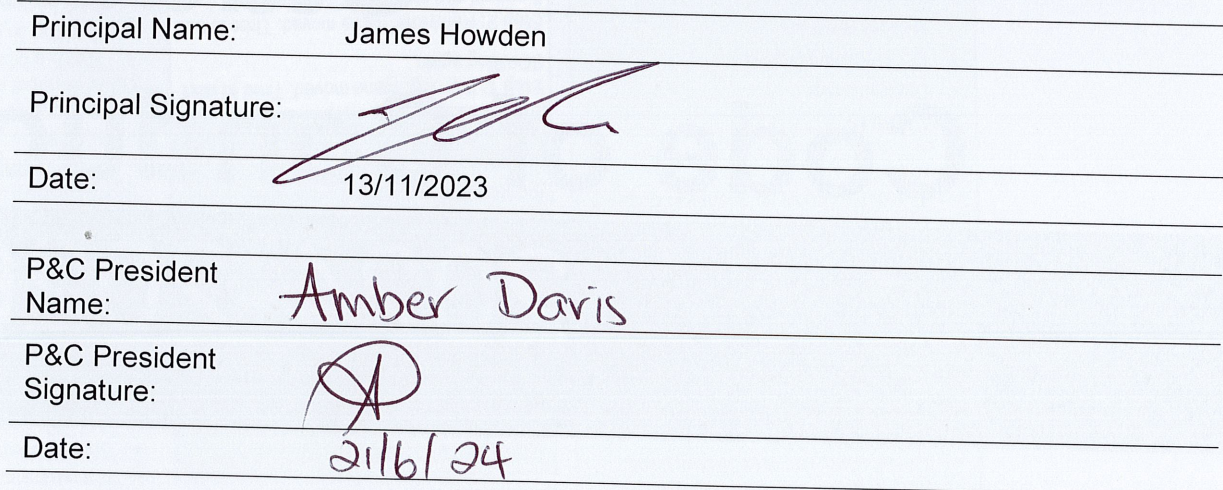 Principal Name: James Howden
Principal Signature:
Date: 13/11/2023
P&C President
Name: Amber Davis
P&C President
Signature:
Date: 21/6/24